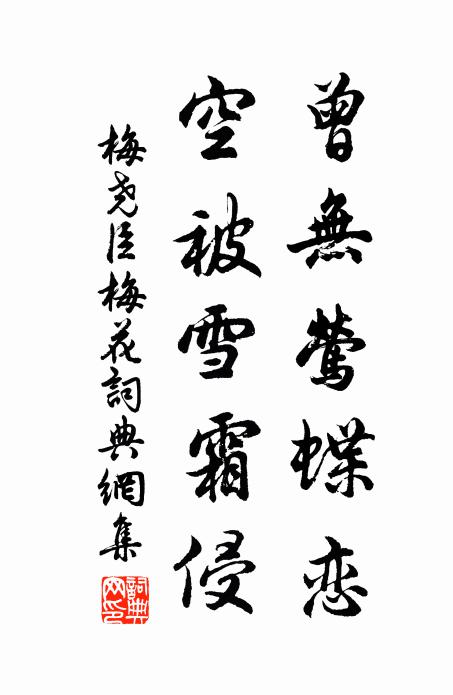 曾無鶯蝶恋
空被雪霜侵
梅尧臣梅花詞典網集
詞典網印